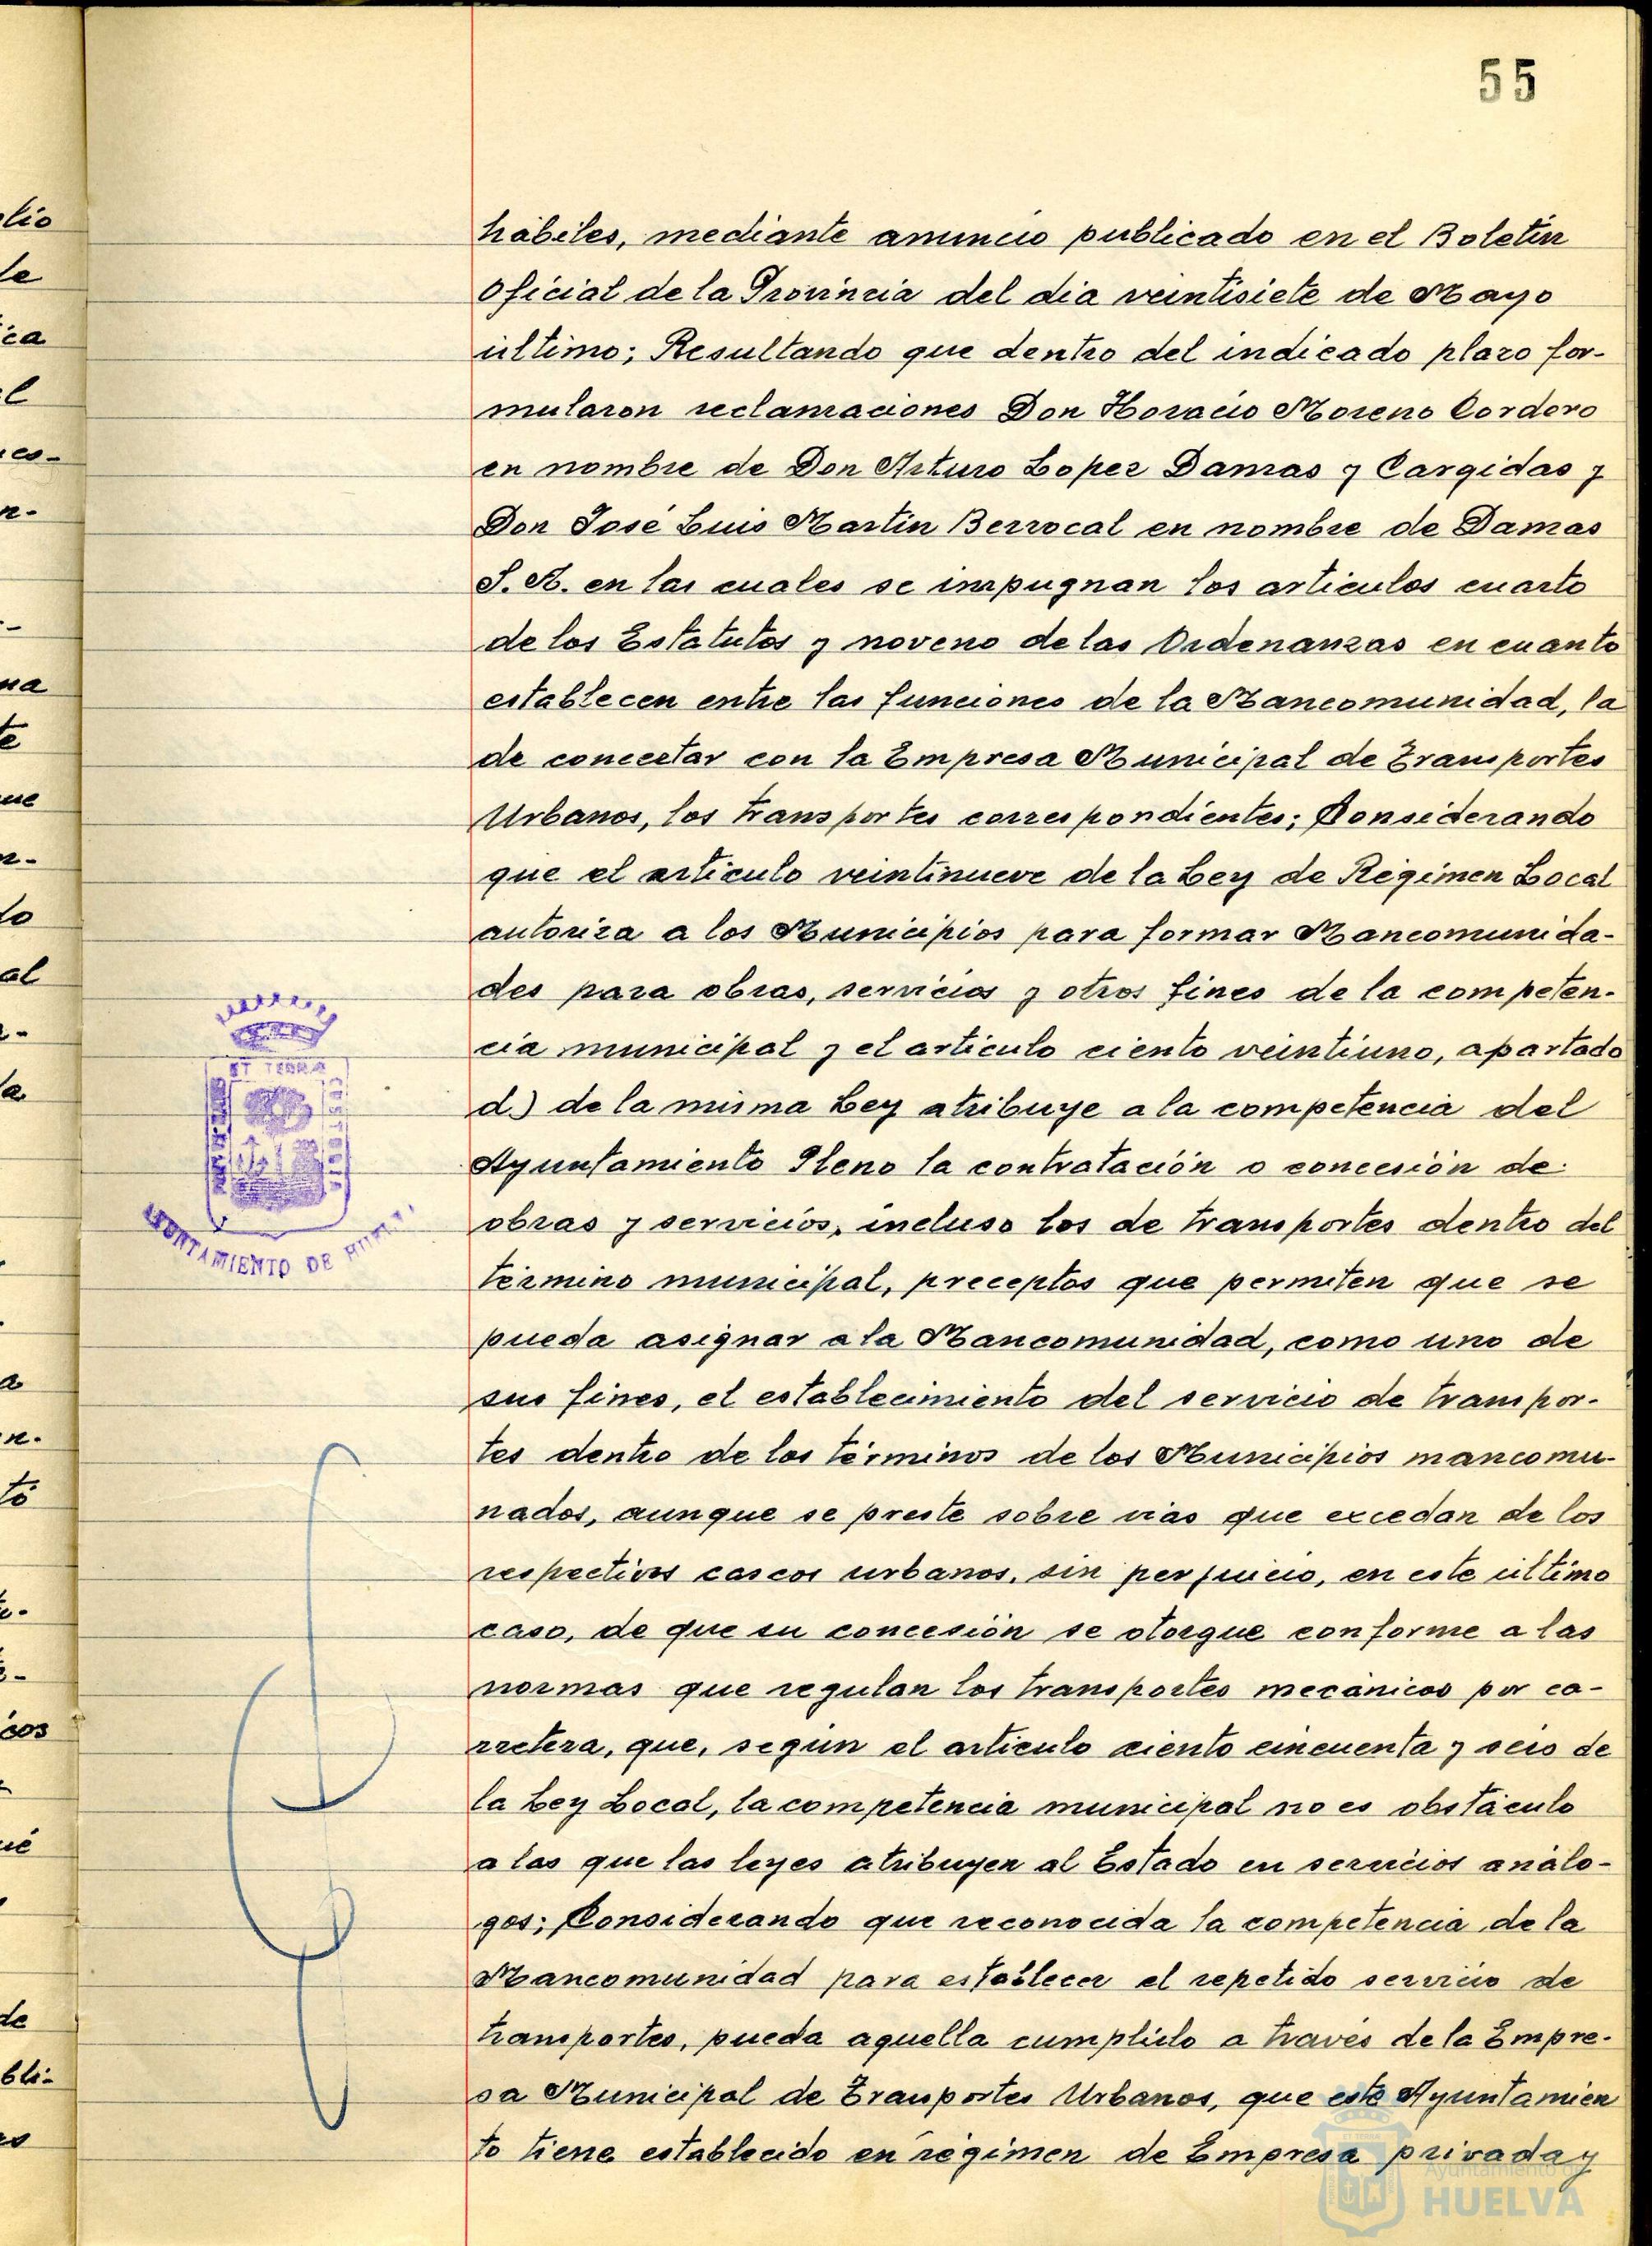 55
hábiles, mediante anuncio publicado en el Boletín
Oficial de la Provincia del dia veintisiete de Mayo
último; Resultando que dentro del indicado plazo for-
mularon reclamaciones Don Horacio Moreno Cordero
en nombre de Don Arturo Lopez Damas y Cargidas y
Don José Luis Martín Berrocal en nombre de Damas
S.A. en las cuales se impugnan los articulos cuarto
de los Estatutos y noveno de las Ordenanzas en cuanto
establecen entre las funciones de la Mancomunidad, la
de concertar con la Empresa Municipal de Transportes
Urbanos, los transportes correspondientes; Considerando
que el artículo veintinueve de la Ley de Régimen Local
autoriza a los Municipios para formar Mancomunida-
des para obras, servicios y otros fines de la competen-
cia municipal y el artículo ciento veintiuno, apartado
d) de la misma Ley atribuye a la competencia del
Ayuntamiento Pleno la contratación o concesión de
obras y servicios, incluso los de transportes dentro del
término municipal, preceptos que permiten que se
pueda asignar a la Mancomunidad, como uno de
sus fines, el establecimiento del servicio de transpor-
tes dentro de los términos de los Municipios mancomu-
nados, aunque se preste sobre vias que excedan de los
respectivos cascos urbanos, sin perjuicio, en este último
caso, de que su concesión se otorgue conforme a las
normas que regulan los transportes mecánicos por ca-
rretera, que, según el artículo ciento cincuenta y seis de
la Ley Local, la competencia municipal no es obstáculo
a las que las leyes atribuyen al Estado en servicios análo-
gos; Considerando que reconocida la competencia de la
Mancomunidad para establecer el repetido servicio de
transportes, pueda aquella cumplirlo a través de la Empre-
sa Municipal de Transportes Urbanos, que este Ayuntamien
to tiene establecido en régimen de Empresa privada y
ET TERRA
AYUNTAMIENTO DE HUELVA
Ayuntamiento de
HUELVA